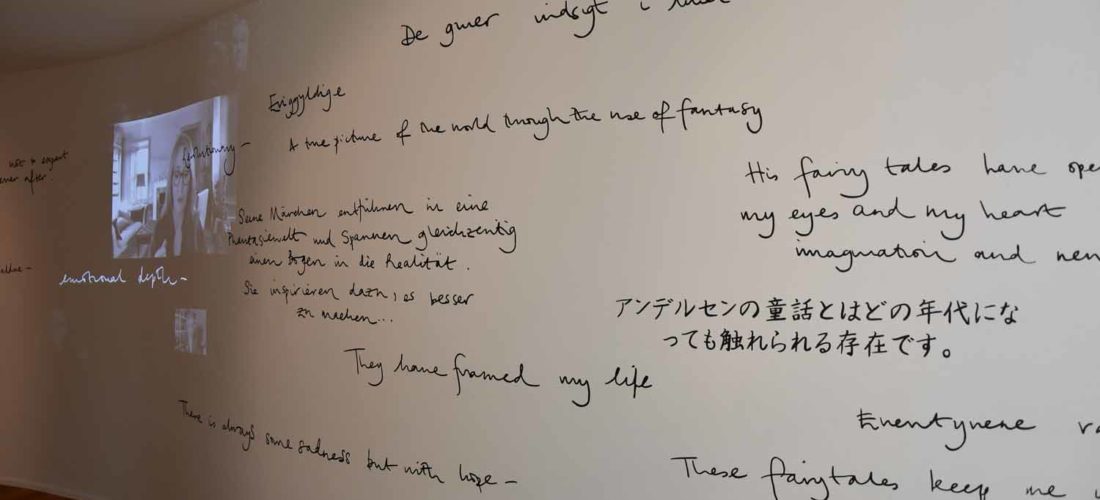 De giver indsigt i
Eviggyldige
A true picture of the world through the use of fantasy
not to expect
ever after.
His fairy tales have ope
my eyes and my heart
imagination and
Seine Märchen entführen in eine
Phantasiewelt und spannen gleichzeitig
einen Bogen in die Realität.
Sie inspirieren dazu, es besser
zu machen...
emotional depth –
アンデルセンの童話とはどの年代にな
っても触れられる存在です。
They have framed my life
There is always some sadness but with hope –
Eventyrene
These fairytales keep me